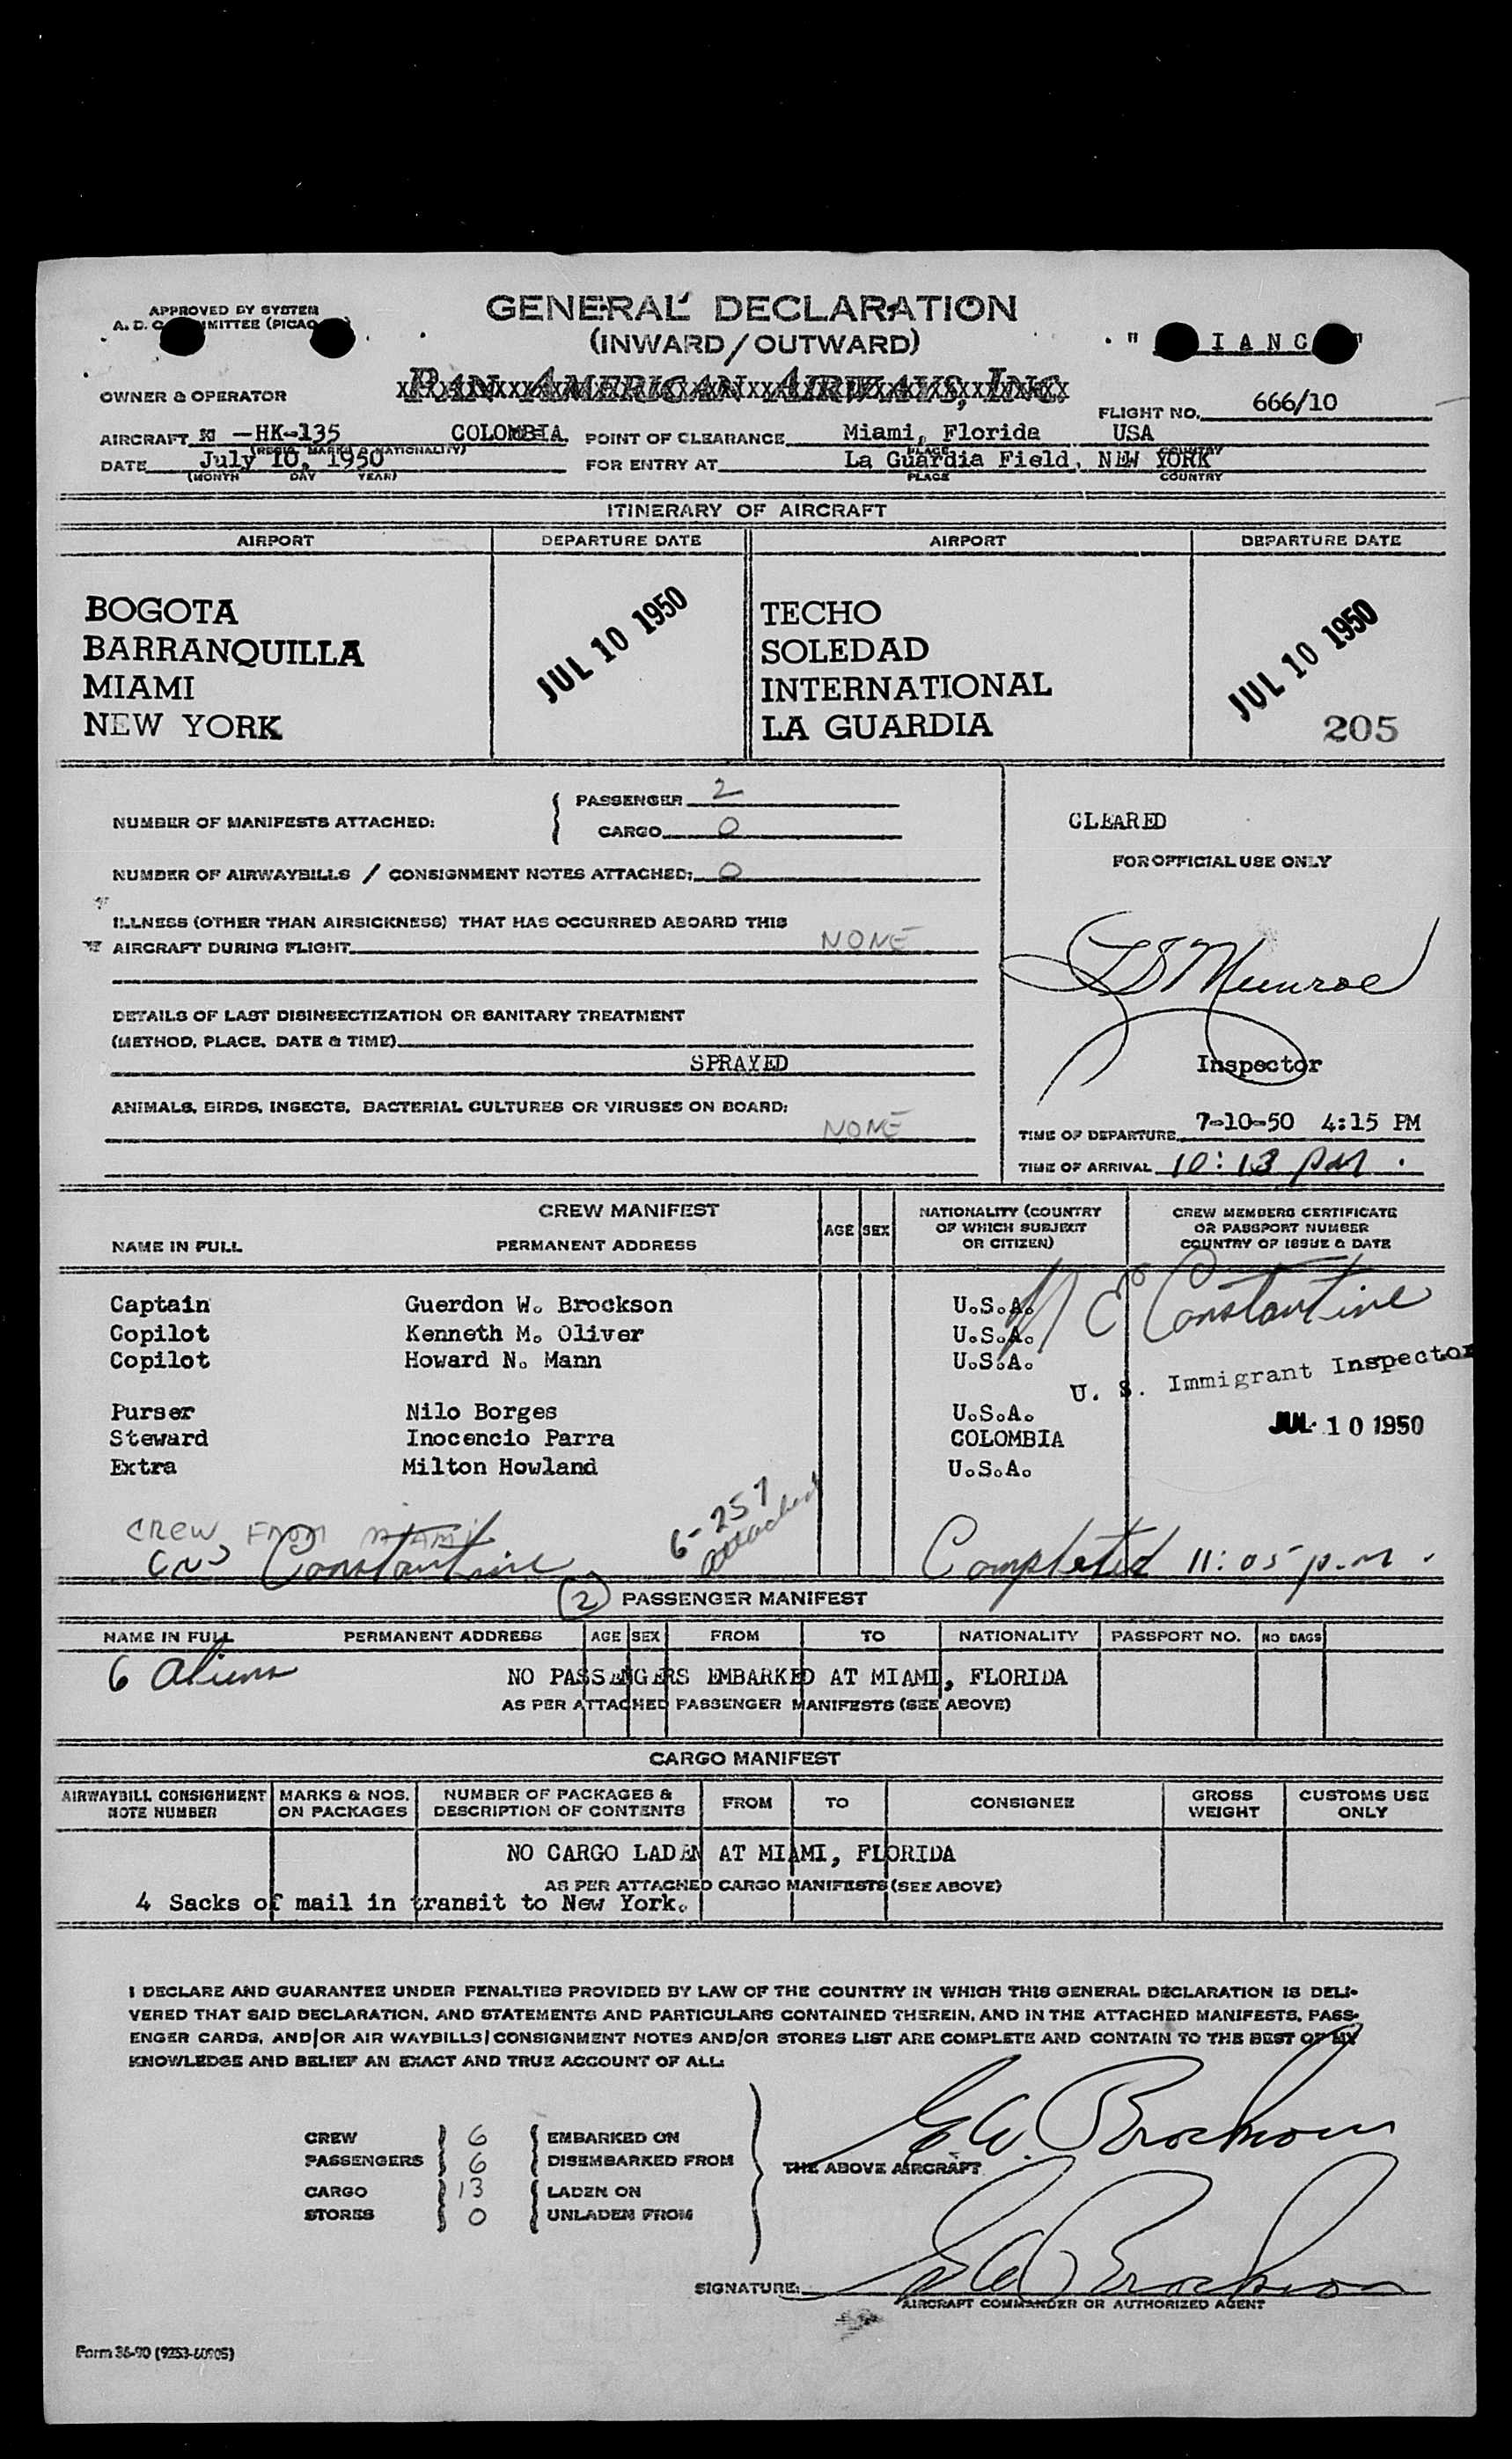 APPROVED BY SYSTEM
GENERAL DECLARATION
(INWARD/OUTWARD)
" IANC "
OWNER & OPERATOR PAN AMERICAN AIRWAYS, INC.
FLIGHT NO. 666/10
AIRCRAFT -HK-135 COLOMBIA POINT OF CLEARANCE Miami, Florida USA
(REGIS. MARKS & NATIONALITY) PLACE COUNTRY
DATE July 10, 1950 FOR ENTRY AT La Guardia Field, NEW YORK
(MONTH DAY YEAR) PLACE COUNTRY
ITINERARY OF AIRCRAFT
AIRPORT DEPARTURE DATE AIRPORT DEPARTURE DATE
BOGOTA TECHO
BARRANQUILLA JUL 10 1950 SOLEDAD JUL 10 1950
MIAMI INTERNATIONAL
NEW YORK LA GUARDIA 205
NUMBER OF MANIFESTS ATTACHED: PASSENGER 2
CARGO 0
CLEARED
FOR OFFICIAL USE ONLY
NUMBER OF AIRWAYBILLS / CONSIGNMENT NOTES ATTACHED: 0
ILLNESS (OTHER THAN AIRSICKNESS) THAT HAS OCCURRED ABOARD THIS
AIRCRAFT DURING FLIGHT NONE
Munroe
DETAILS OF LAST DISINSECTIZATION OR SANITARY TREATMENT
(METHOD, PLACE, DATE & TIME)
SPRAYED
Inspector
ANIMALS, BIRDS, INSECTS, BACTERIAL CULTURES OR VIRUSES ON BOARD:
NONE
TIME OF DEPARTURE 7-10-50 4:15 PM
TIME OF ARRIVAL 10:13 PM.
CREW MANIFEST
NAME IN FULL PERMANENT ADDRESS AGE SEX
NATIONALITY (COUNTRY
OF WHICH SUBJECT
OR CITIZEN)
CREW MEMBERS CERTIFICATE
OR PASSPORT NUMBER
COUNTRY OF ISSUE & DATE
Captain Guerdon W. Brockson U.S.A.
Copilot Kenneth M. Oliver U.S.A.
Copilot Howard N. Mann U.S.A.
Constantine
U. S. Immigrant Inspector
Purser Nilo Borges U.S.A.
JUL 10 1950
Steward Inocencio Parra COLOMBIA
Extra Milton Howland U.S.A.
CREW FROM MIAMI
Constantine
6-257
attached
Completed 11:05 p.m.
(2) PASSENGER MANIFEST
NAME IN FULL PERMANENT ADDRESS AGE SEX FROM TO NATIONALITY PASSPORT NO. NO BAGS
6 aliens NO PASSENGERS EMBARKED AT MIAMI, FLORIDA
AS PER ATTACHED PASSENGER MANIFESTS (SEE ABOVE)
CARGO MANIFEST
AIRWAYBILL CONSIGNMENT
NOTE NUMBER
MARKS & NOS.
ON PACKAGES
NUMBER OF PACKAGES &
DESCRIPTION OF CONTENTS
FROM TO CONSIGNEE
GROSS
WEIGHT
CUSTOMS USE
ONLY
NO CARGO LADEN AT MIAMI, FLORIDA
AS PER ATTACHED CARGO MANIFESTS (SEE ABOVE)
4 Sacks of mail in transit to New York.
I DECLARE AND GUARANTEE UNDER PENALTIES PROVIDED BY LAW OF THE COUNTRY IN WHICH THIS GENERAL DECLARATION IS DELI-
VERED THAT SAID DECLARATION, AND STATEMENTS AND PARTICULARS CONTAINED THEREIN, AND IN THE ATTACHED MANIFESTS, PASS-
ENGER CARDS, AND/OR AIR WAYBILLS/CONSIGNMENT NOTES AND/OR STORES LIST ARE COMPLETE AND CONTAIN TO THE BEST OF MY
KNOWLEDGE AND BELIEF AN EXACT AND TRUE ACCOUNT OF ALL:
CREW 6 EMBARKED ON
PASSENGERS 6 DISEMBARKED FROM
THE ABOVE AIRCRAFT
G W. Brockson
CARGO 13 LADEN ON
STORES 0 UNLADEN FROM
SIGNATURE: G W Brockson
AIRCRAFT COMMANDER OR AUTHORIZED AGENT
Form 36-90 (9253-60905)